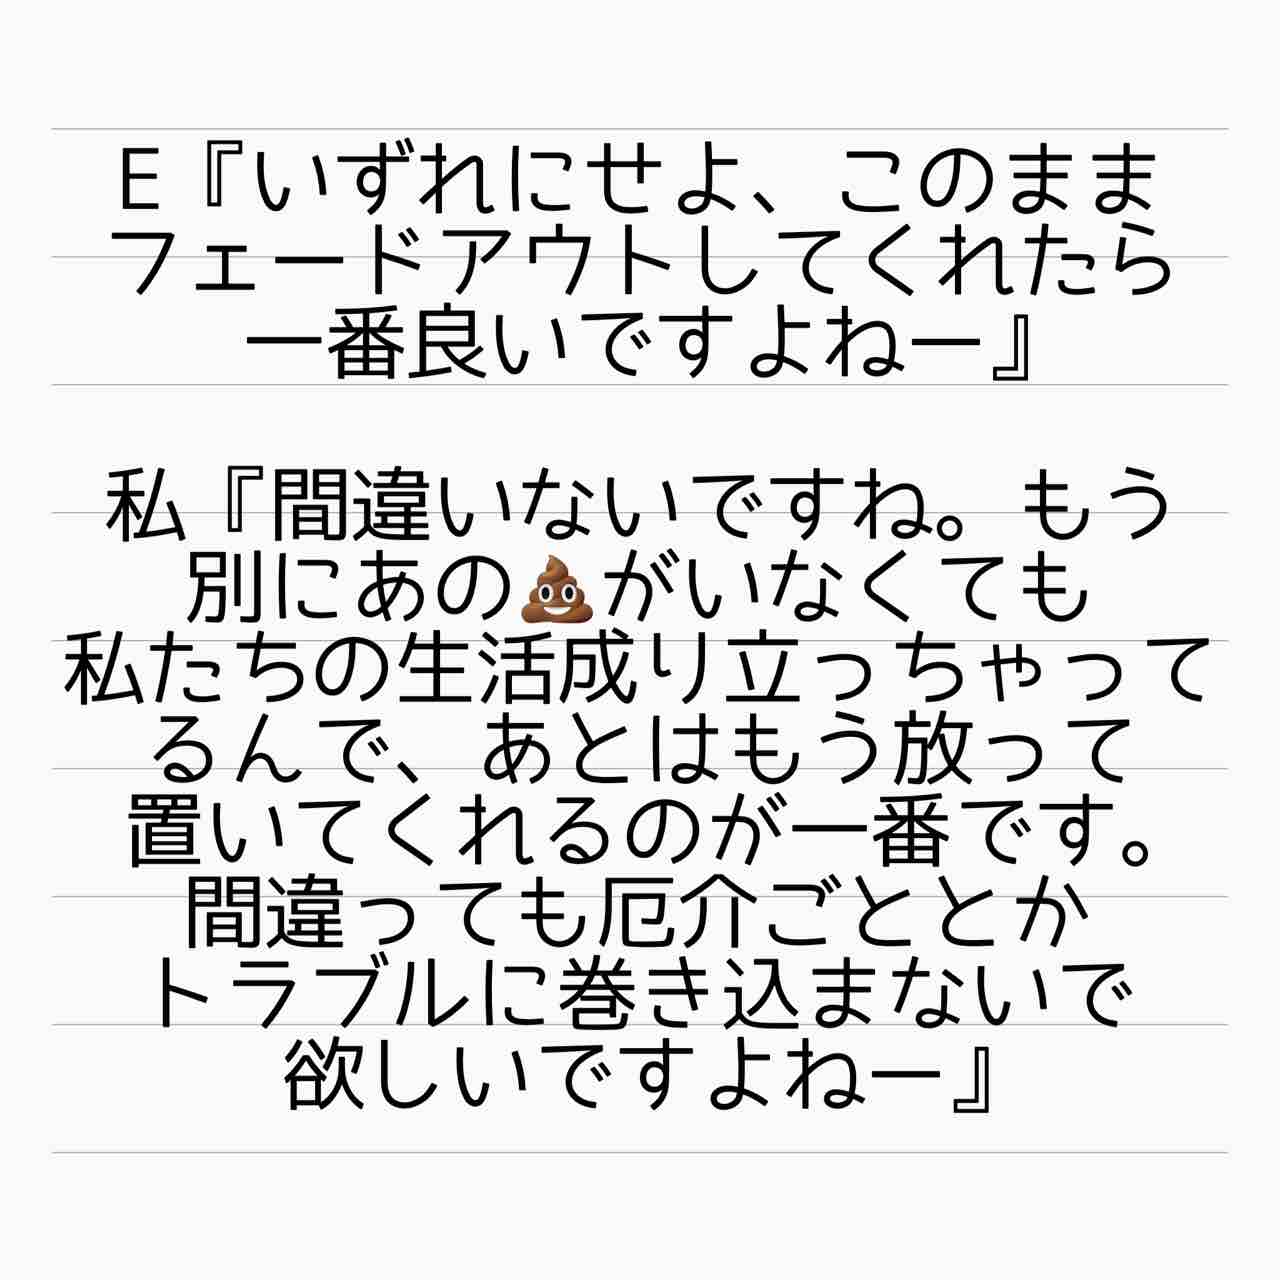 E『いずれにせよ、このまま
フェードアウトしてくれたら
一番良いですよねー』
私『間違いないですね。もう
別にあの💩がいなくても
私たちの生活成り立っちゃって
るんで、あとはもう放って
置いてくれるのが一番です。
間違っても厄介ごととか
トラブルに巻き込まないで
欲しいですよねー』